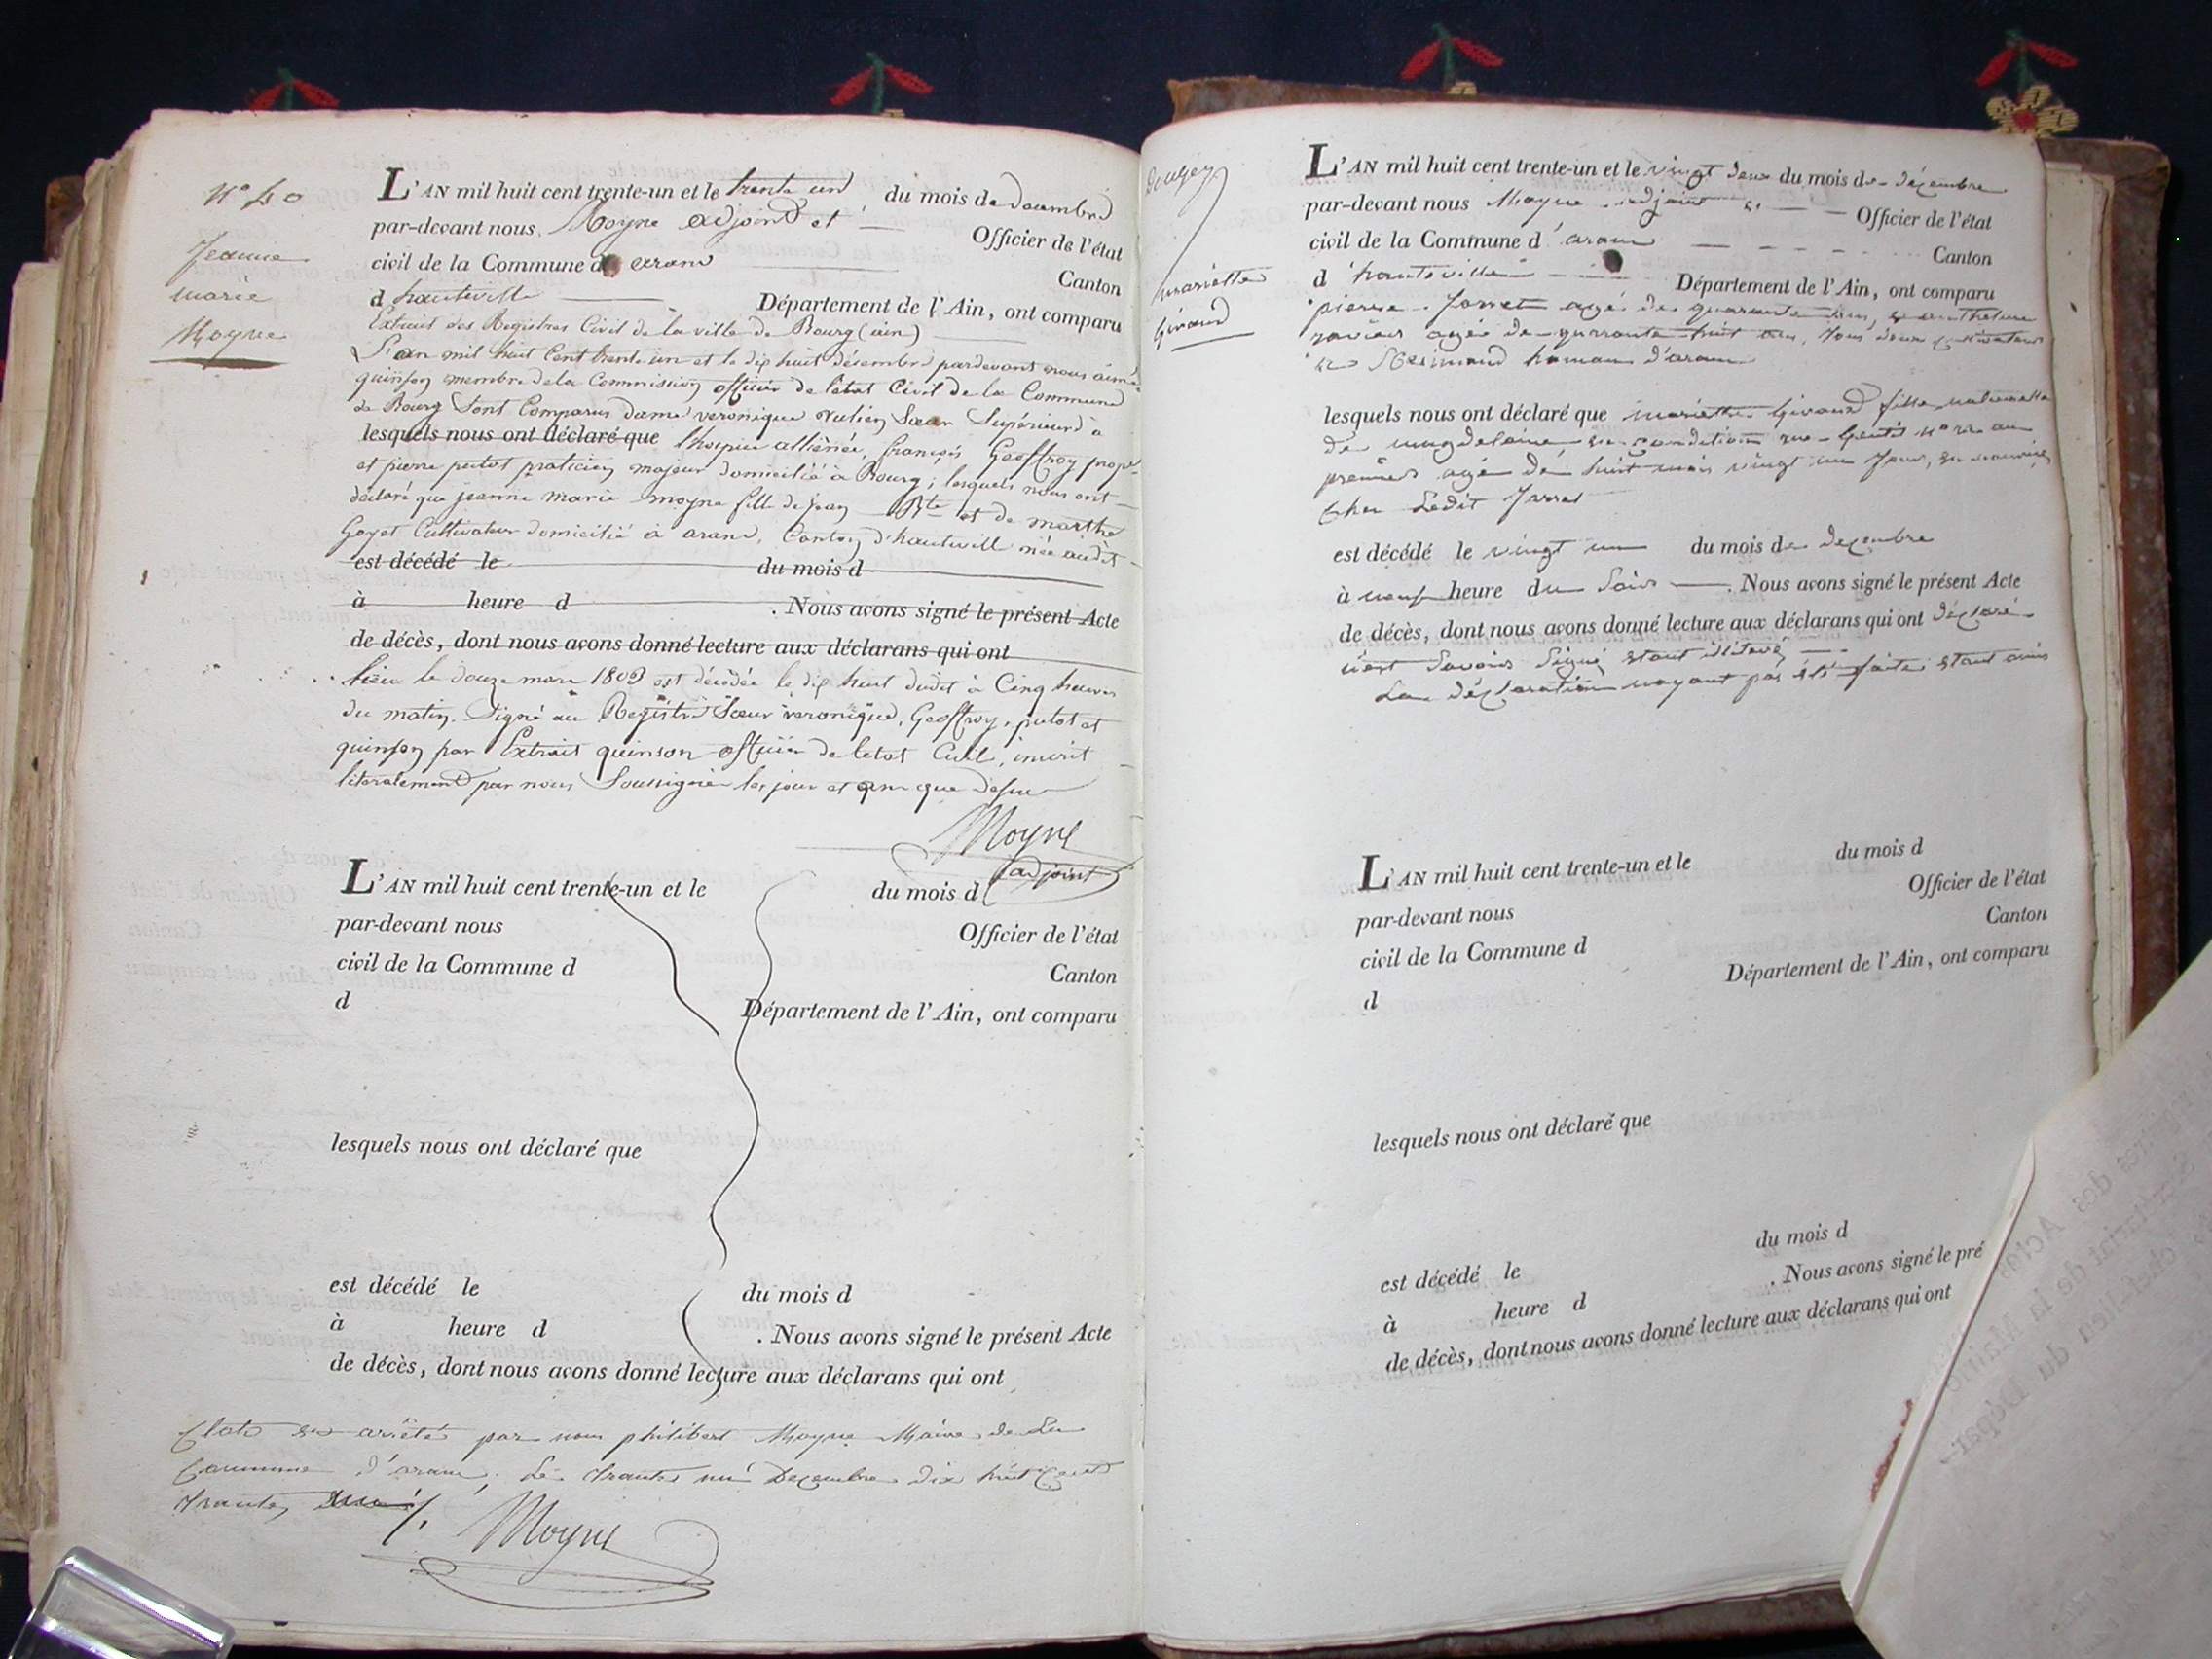 N° 40
Jeanne
marie
Moyne
L'AN mil huit cent trente-un et le trente un du mois de decembre
par-devant nous Moyne adjoint et Officier de l'état
civil de la Commune d arand Canton
d hauteville Département de l'Ain, ont comparu
Extrait des Registres Civil de la ville de Bourg (ain)
L'an mil huit Cent trente un et le dix huit désembre pardevant nous aimé
quinson membre de la Commission officier de l'état Civil de la Commune
de Bourg Sont Comparus dame veronique Sœur Supérieure à
lesquels nous ont déclaré que l'hospice alliénée, françois Geoffroy prop
et pierre putot praticien majeur domicilié à Bourg; lesquels nous ont
déclaré que jeanne marie moyne fille de jean Bte et de marthe
Goyet Cultivateur domicilié à arand, Canton d'hauteville née audit
est décédé le du mois d
à heure d . Nous avons signé le présent Acte
de décès, dont nous avons donné lecture aux déclarans qui ont
lieu le douze mars 1803 est décédée le dix huit dudit à Cinq heures
du matin. Signé au Registre Sœur veronique, Geoffroy, putot et
quinson par Extrait quinson officier de l'etat Civil, inscrit
literalement par nous Soussigné les jour et an que dessus
Moyne
adjoint
L'AN mil huit cent trente-un et le du mois d
par-devant nous Officier de l'état
civil de la Commune d Canton
d Département de l'Ain, ont comparu
lesquels nous ont déclaré que
est décédé le du mois d
à heure d . Nous avons signé le présent Acte
de décès, dont nous avons donné lecture aux déclarans qui ont
Clos et arrêté par nous philibert Moyne Maire de La
Commune d'aran, Le trente un Decembre dix huit Cent
trente
Moyne
mariette
Giraud
L'AN mil huit cent trente-un et le vingt deux du mois de decembre
par-devant nous Moyne adjoint Officier de l'état
civil de la Commune d'aran Canton
d'hauteville Département de l'Ain, ont comparu
pierre Jarret agé de quarante ans,
agé de quarante huit ans, tous deux cultivateurs
hamau d'aran
lesquels nous ont déclaré que mariette Giraud fille naturelle
de magdelaine
premier agé de huit mois vingt un jour,
Chez Ledit Jarret
est décédé le vingt un du mois de decembre
à neuf heure du Soir . Nous avons signé le présent Acte
de décès, dont nous avons donné lecture aux déclarans qui ont déclaré
Savoir Signé
La déclaration nayant pas été faite
L'AN mil huit cent trente-un et le du mois d
par-devant nous Officier de l'état
civil de la Commune d Canton
d Département de l'Ain, ont comparu
lesquels nous ont déclaré que
est décédé le du mois d
à heure d . Nous avons signé le pré
de décès, dont nous avons donné lecture aux déclarans qui ont